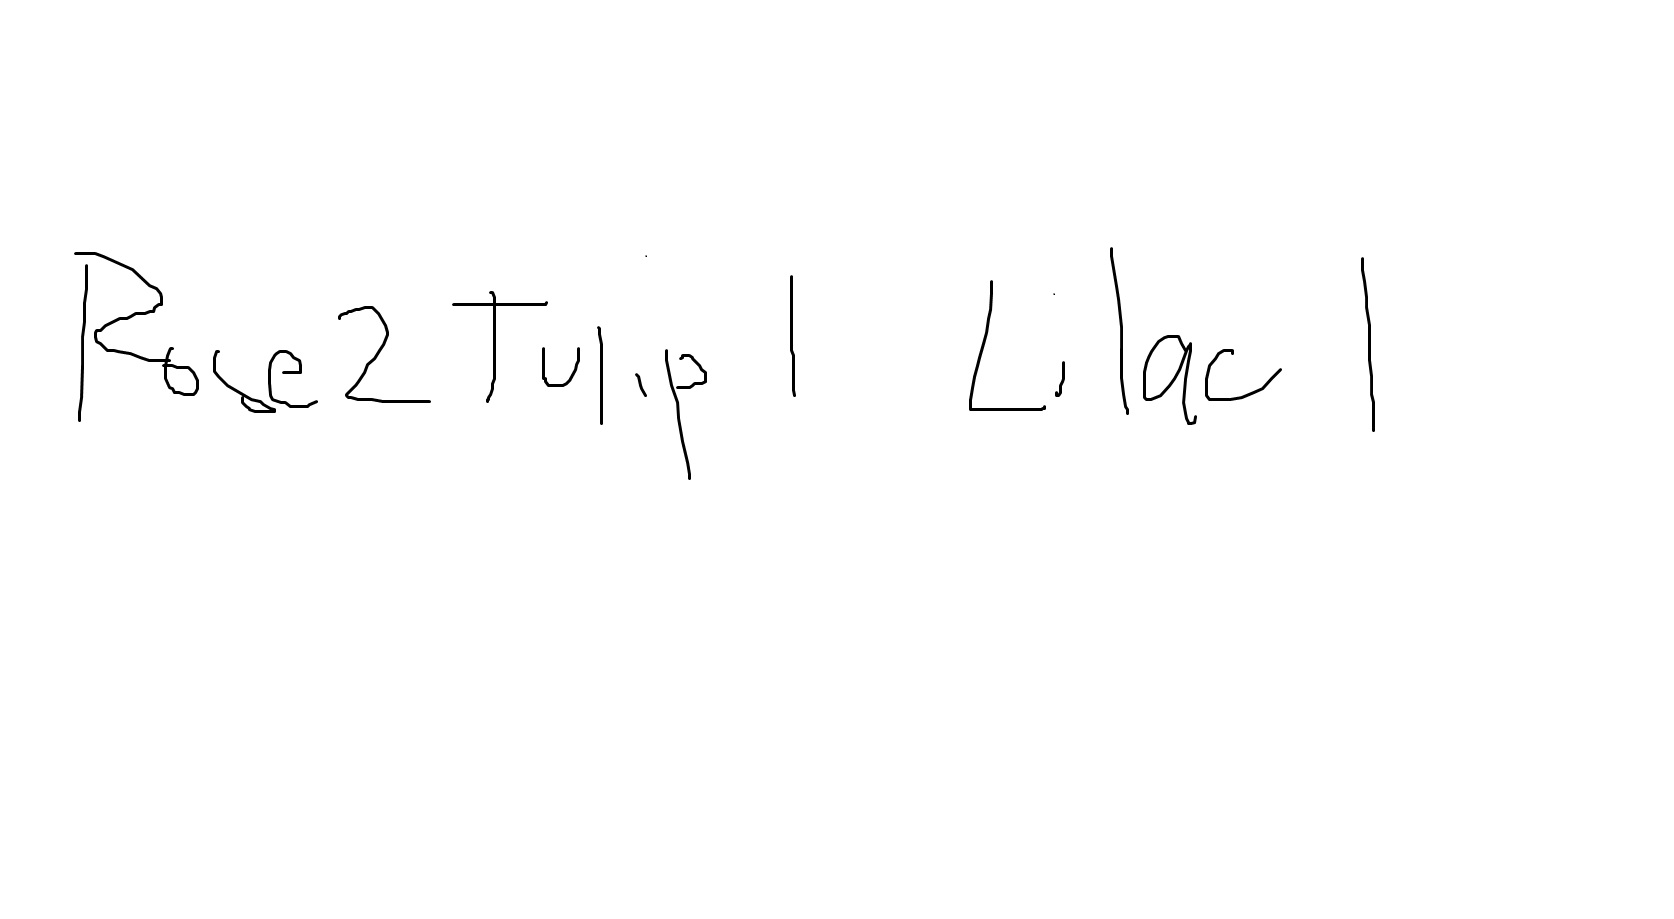 Rose 2 Tulip 1 Lilac 1